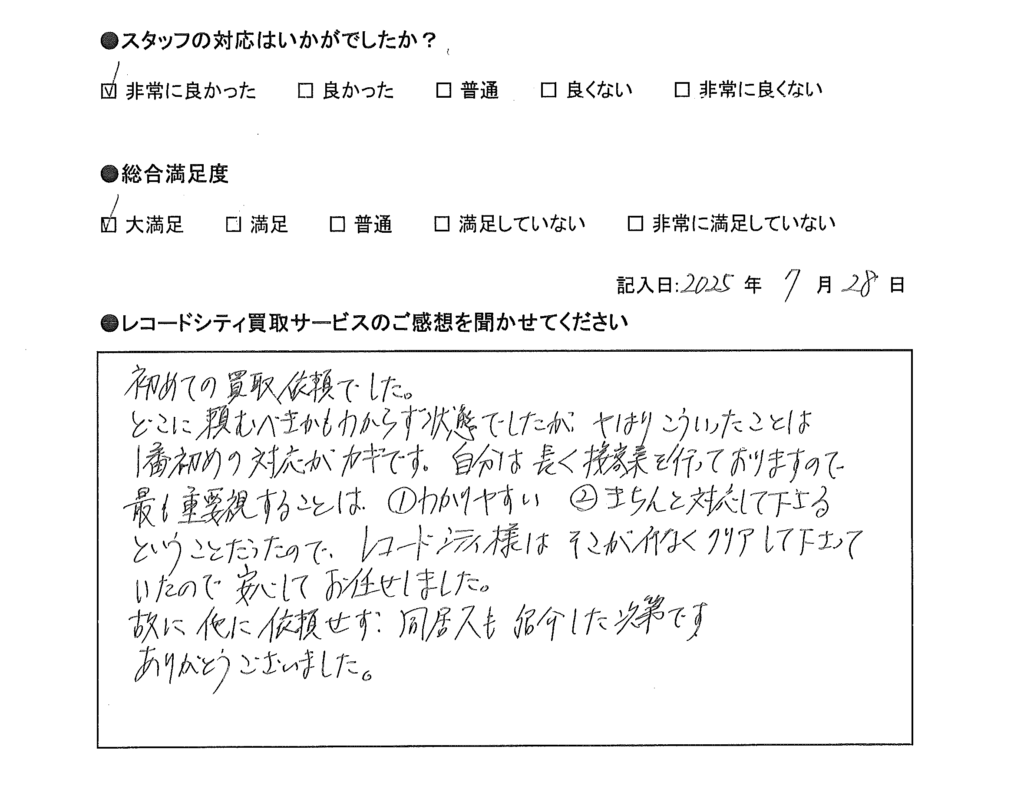 ●スタッフの対応はいかがでしたか？
☑ 非常に良かった □ 良かった □ 普通 □ 良くない □ 非常に良くない
●総合満足度
☑ 大満足 □ 満足 □ 普通 □ 満足していない □ 非常に満足していない
記入日:2025 年 7 月 28 日
●レコードシティ買取サービスのご感想を聞かせてください
初めての買取依頼でした。
どこに頼むべきかもわからず状態でしたが、やはりこういったことは
1番初めの対応がカギです。自分は長く接客業を行っておりますので
最も重要視することは ①わかりやすい ②きちんと対応して下さる
ということだったので、レコードシティ様はそこが何なくクリアして下さって
いたので安心してお任せしました。
故に他に依頼せず、同居人も紹介した次第です
ありがとうございました。